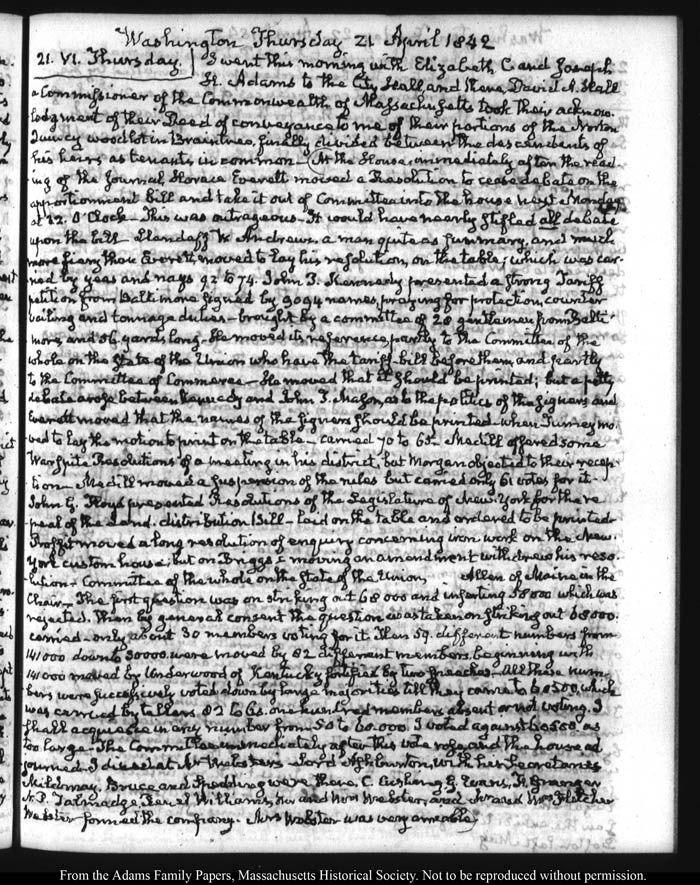 Washington Thursday 21 April 1842
21. VI. Thursday. I went this morning with Elizabeth C and Joseph
H. Adams to the City Hall, and there, David A. Hall
a Commissioner of the Commonwealth of Massachusetts took their acknow-
ledgment of their Deed of conveyance to me of their portions of the Norton
Quincy woodlot in Braintree, finally divided between the descendents of
his heirs as tenants in common. At the House, immediately after the read-
ing of the Journal, Horace Everett moved a Resolution to cease debate on the
apportionment bill and take it out of Committee into the house next Monday
at 12. O'Clock— This was outrageous— It would have nearly stifled all debate
upon the bill— Landaff W Andrews, a man quite as summary, and much
more fiery than Everett, moved to lay his resolution, on the table; which was car-
ried by yeas and nays 92 to 74. John P. Kennedy presented a strong Tariff
petition from Baltimore signed by 9094 names, praying for protection, counter
vailing and tonnage duties— brought by a committee of 20 gentlemen from Balti-
more, and 86 yards long— He moved its reference, partly to the Committee of the
whole on the State of the Union who have the tariff-bill before them, and partly
to the Committee of Commerce— He moved that it should be printed; but a petty
debate arose between Kennedy and John T. Mason, as to the politics of the signers and
Everett moved that the names of the signers should be printed— when Turney mo-
ved to lay the motion to print on the table— carried 70 to 65. Medill offered some
Warspite Resolutions of a meeting in his district, but Morgan objected to their recep-
tion— Medill moved a suspension of the rules but carried only 61 votes for it—
John G. Floyd presented Resolutions of the Legislature of New-York for the re-
peal of the Land-distribution Bill— laid on the table and ordered to be printed—
Proffit moved a long resolution of enquiry concerning iron work on the New-
York custom house, but on Briggs's moving an amendment withdrew his reso-
lution— Committee of the whole on the State of the Union, Allen of Maine in the
Chair— The first question was on striking out 68000 and inserting 58000 which was
rejected. Then by general consent the question was taken on striking out 68000.
carried— only about 30 members voting for it. Then 59. different numbers from
141000 down to 30000. were moved by 82 different members, beginning with
141000 moved by Underwood of Kentucky fortified by two speeches— All these num-
bers were successively voted down by large majorities till they came to 60500, which
was carried by tellers. 82 to 62. one hundred members absent or not voting. I
shall acquiesce in any number from 50 to 60.000. I voted against 60500 as
too large— The Committee immediately after this vote rose, and the house ad-
journed. I dined at Mr Webster's— Lord Ashburton, with his Secretaries
Mildmay, Bruce and Stepping were there, C. Cushing G. Evans, F. Granger
N. P. Talmadge, Reuel Williams, Mr and Mrs Webster, and Mr and Mrs Fletcher
Webster formed the company. Mrs Webster was very amiable,
From the Adams Family Papers, Massachusetts Historical Society. Not to be reproduced without permission.